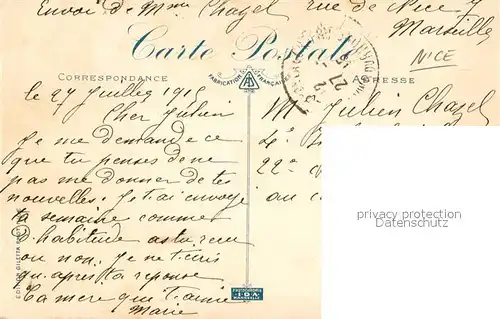 Envoi de Mme Chazel rue de Nice 7
Marseille
NICE
Carte Postale
CORRESPONDANCE
FABRICATION FRANÇAISE
ADRESSE
le 27 Juillet 1915
Cher Julien
Je me demande ce
que tu penses donc
pas me donner de tes
nouvelles. Je t'ai envoyé
ta semaine comme
d'habitude as tu reçu
ou non. Je ne t'écris
qu'après ta réponse
Ta mère que t'aime
Marie
M Julien Chazel
4e
22e
au
EDITION GILETTA
PHOTOTYPIE
IDA
MARSEILLE
privacy protection
watermark